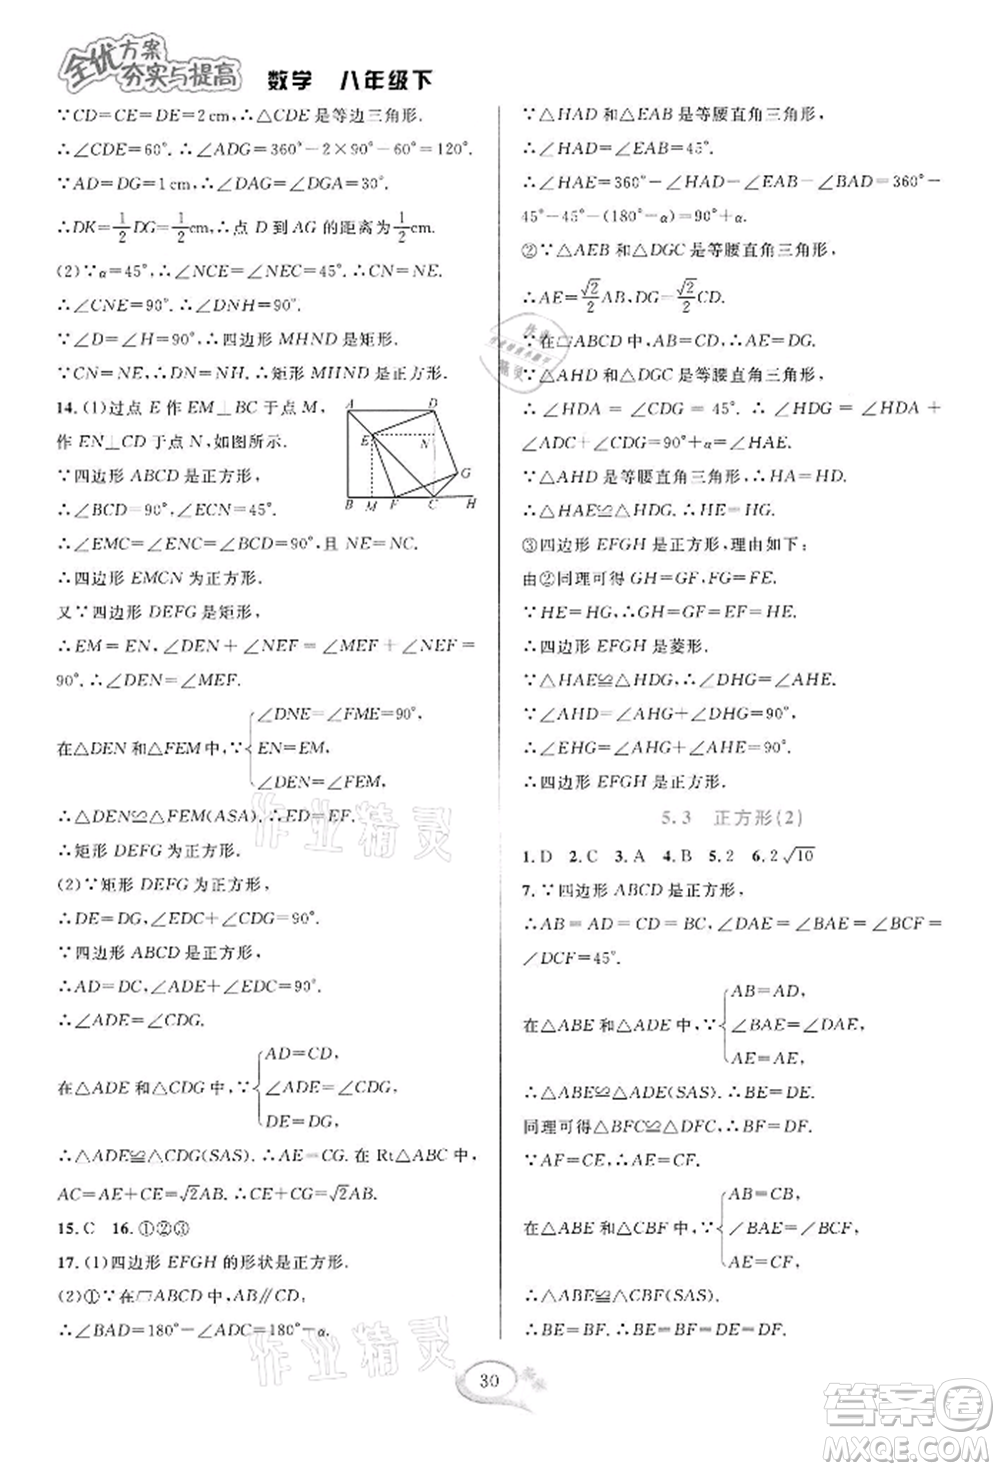 全优方案
夯实与提高 数学 八年级下
∵CD=CE=DE=2 cm,∴△CDE是等边三角形.
∴∠CDE=60°.∴∠ADG=360°-2×90°-60°=120°.
∵AD=DG=1cm,∴∠DAG=∠DGA=30°.
∴DK=1/2DG=1/2cm,∴点 D 到 AG 的距离为1/2cm.
(2)∵α=45°,∴∠NCE=∠NEC=45°.∴CN=NE.
∴∠CNE=90°.∴∠DNH=90°.
∵∠D=∠H=90°,∴四边形 MHND 是矩形.
∵CN=NE,∴DN=NH.∴矩形 MHND 是正方形.
14.(1)过点 E 作 EM⊥BC 于点 M,
作 EN⊥CD 于点 N,如图所示.
∵四边形 ABCD 是正方形,
∴∠BCD=90°,∠ECN=45°.
∴∠EMC=∠ENC=∠BCD=90°,且 NE=NC.
∴四边形 EMCN 为正方形.
又∵四边形 DEFG 是矩形,
∴EM=EN,∠DEN+∠NEF=∠MEF+∠NEF=
90°.∴∠DEN=∠MEF.
在△DEN和△FEM中,∵{∠DNE=∠FME=90°,
EN=EM,
∠DEN=∠FEM,
∴△DEN≌△FEM(ASA).∴ED=EF.
∴矩形 DEFG 为正方形.
(2)∵矩形 DEFG 为正方形,
∴DE=DG,∠EDC+∠CDG=90°.
∵四边形 ABCD 是正方形,
∴AD=DC,∠ADE+∠EDC=90°.
∴∠ADE=∠CDG.
在△ADE 和△CDG 中,∵{AD=CD,
∠ADE=∠CDG,
DE=DG,
∴△ADE≌△CDG(SAS).∴AE=CG.在 Rt△ABC 中,
AC=AE+CE=√2AB.∴CE+CG=√2AB.
15.C 16.①②③
17.(1)四边形 EFGH 的形状是正方形.
(2)①∵在▱ABCD 中,AB∥CD,
∴∠BAD=180°-∠ADC=180°-α.
∵△HAD 和△EAB 是等腰直角三角形,
∴∠HAD=∠EAB=45°.
∴∠HAE=360°-∠HAD-∠EAB-∠BAD=360°-
45°-45°-(180°-α)=90°+α.
②∵△AEB 和△DGC 是等腰直角三角形,
∴AE=√2/2AB,DG=√2/2CD.
∵在▱ABCD 中,AB=CD,∴AE=DG.
∵△AHD 和△DGC 是等腰直角三角形,
∴∠HDA=∠CDG=45°.∴∠HDG=∠HDA+
∠ADC+∠CDG=90°+α=∠HAE.
∵△AHD 是等腰直角三角形,∴HA=HD.
∴△HAE≌△HDG.∴HE=HG.
③四边形 EFGH 是正方形,理由如下:
由②同理可得 GH=GF,FG=FE.
∵HE=HG,∴GH=GF=EF=HE.
∴四边形 EFGH 是菱形.
∵△HAE≌△HDG,∴∠DHG=∠AHE.
∵∠AHD=∠AHG+∠DHG=90°,
∴∠EHG=∠AHG+∠AHE=90°.
∴四边形 EFGH 是正方形.
5.3 正方形(2)
1.D 2.C 3.A 4.B 5.2 6.2√10
7.∵四边形 ABCD 是正方形,
∴AB=AD=CD=BC,∠DAE=∠BAE=∠BCF=
∠DCF=45°.
在△ABE 和△ADE 中,∵{AB=AD,
∠BAE=∠DAE,
AE=AE,
∴△ABE≌△ADE(SAS).∴BE=DE.
同理可得△BFC≌△DFC,∴BF=DF.
∵AF=CE,∴AE=CF.
在△ABE 和△CBF 中,∵{AB=CB,
∠BAE=∠BCF,
AE=CF,
∴△ABE≌△CBF(SAS).
∴BE=BF.∴BE=BF=DE=DF.
A
D
E
N
G
B
M
F
C
H
作业精灵
作业精灵
30
答案圈
MXQE.COM